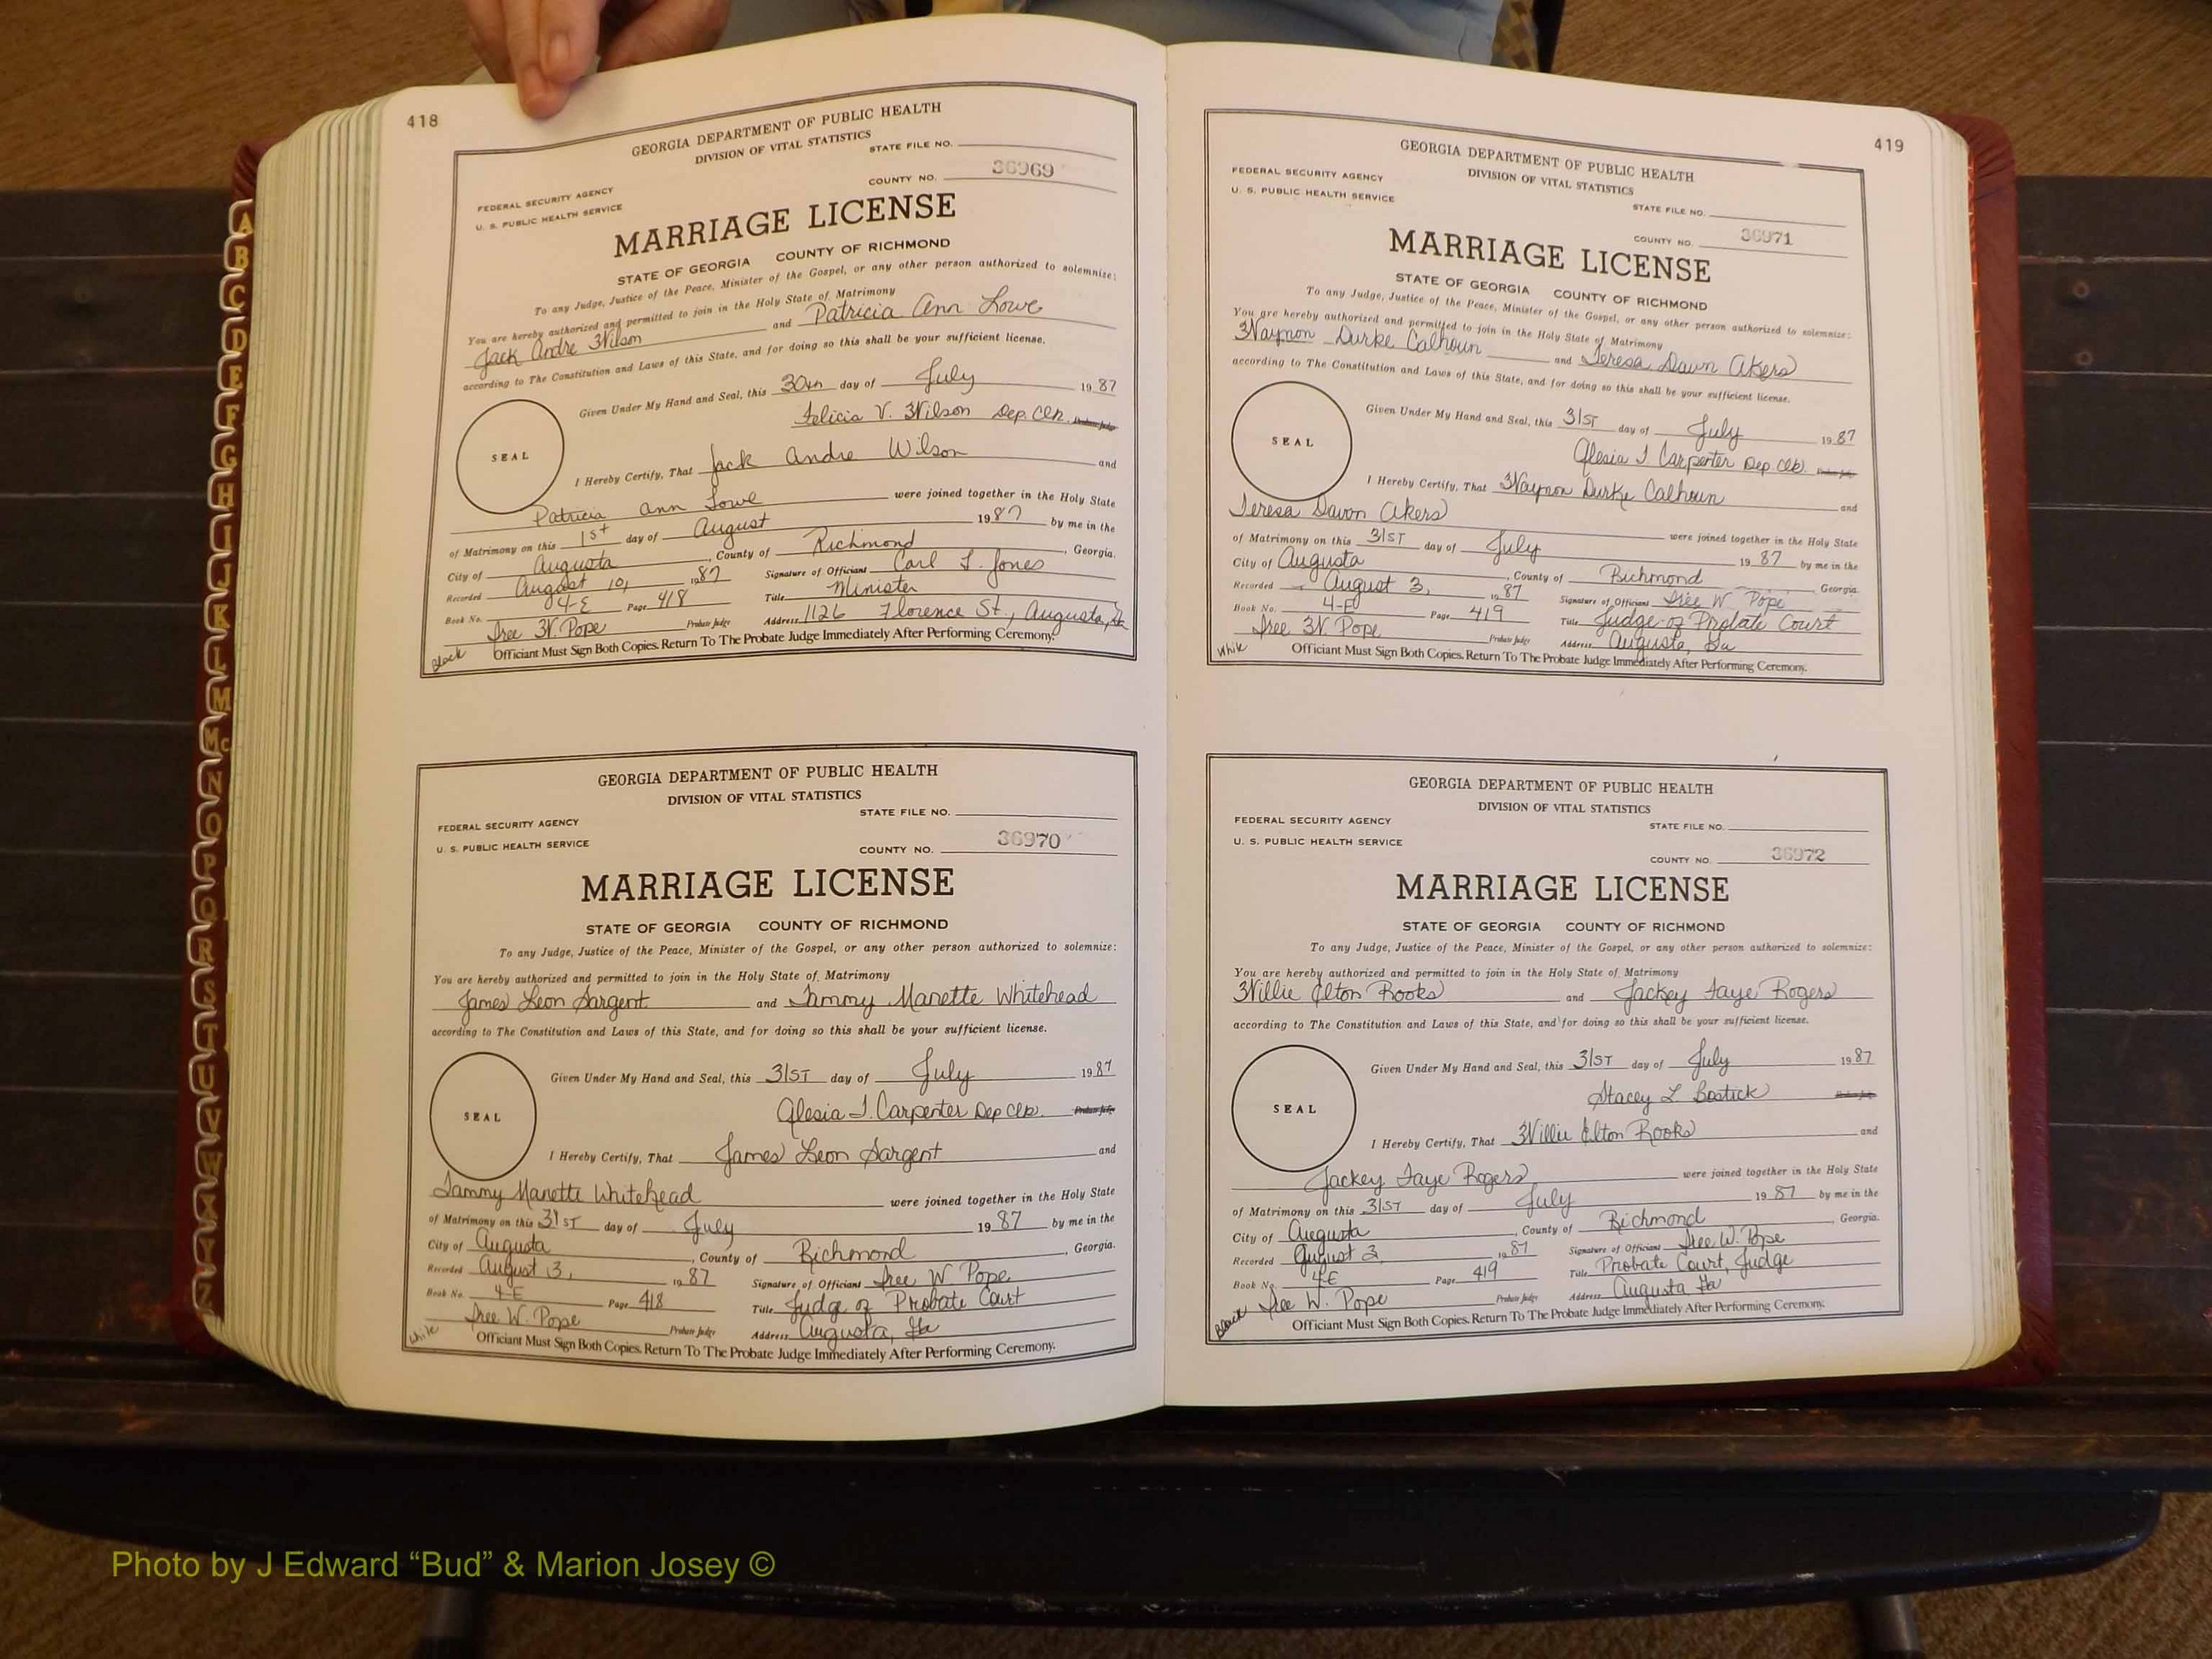 418
GEORGIA DEPARTMENT OF PUBLIC HEALTH
DIVISION OF VITAL STATISTICS
STATE FILE NO.
FEDERAL SECURITY AGENCY
U. S. PUBLIC HEALTH SERVICE
COUNTY NO. 36969
MARRIAGE LICENSE
STATE OF GEORGIA COUNTY OF RICHMOND
To any Judge, Justice of the Peace, Minister of the Gospel, or any other person authorized to solemnize:
You are hereby authorized and permitted to join in the Holy State of Matrimony
Jack Andre Wilson and Patricia Ann Lowe
according to The Constitution and Laws of this State, and for doing so this shall be your sufficient license.
Given Under My Hand and Seal, this 30th day of July 1987
Felicia V. Wilson Dep. Clk. Probate Judge
SEAL
I Hereby Certify, That Jack Andre Wilson and
Patricia Ann Lowe were joined together in the Holy State
of Matrimony on this 1st day of August 1987 by me in the
City of Augusta, County of Richmond, Georgia.
Recorded August 10, 1987 Signature of Officiant Carl L. Jones
Book No. 4-E Page 418 Title Minister
W. Pope Probate Judge Address 1126 Florence St., Augusta, Ga
Black Officiant Must Sign Both Copies. Return To The Probate Judge Immediately After Performing Ceremony.
GEORGIA DEPARTMENT OF PUBLIC HEALTH
DIVISION OF VITAL STATISTICS
STATE FILE NO.
FEDERAL SECURITY AGENCY
U. S. PUBLIC HEALTH SERVICE
COUNTY NO. 36970
MARRIAGE LICENSE
STATE OF GEORGIA COUNTY OF RICHMOND
To any Judge, Justice of the Peace, Minister of the Gospel, or any other person authorized to solemnize:
You are hereby authorized and permitted to join in the Holy State of Matrimony
James Leon Sargent and Tammy Manette Whitehead
according to The Constitution and Laws of this State, and for doing so this shall be your sufficient license.
Given Under My Hand and Seal, this 31ST day of July 1987
Glesia J. Carpenter Dep Clk. Probate Judge
SEAL
I Hereby Certify, That James Leon Sargent and
Tammy Manette Whitehead were joined together in the Holy State
of Matrimony on this 31ST day of July 1987 by me in the
City of Augusta, County of Richmond, Georgia.
Recorded August 3, 1987 Signature of Officiant W. Pope
Book No. 4-E Page 418 Title Judge of Probate Court
W. Pope Probate Judge Address Augusta, Ga
White Officiant Must Sign Both Copies. Return To The Probate Judge Immediately After Performing Ceremony.
419
GEORGIA DEPARTMENT OF PUBLIC HEALTH
DIVISION OF VITAL STATISTICS
FEDERAL SECURITY AGENCY
U. S. PUBLIC HEALTH SERVICE
STATE FILE NO.
COUNTY NO. 36971
MARRIAGE LICENSE
STATE OF GEORGIA COUNTY OF RICHMOND
To any Judge, Justice of the Peace, Minister of the Gospel, or any other person authorized to solemnize:
You are hereby authorized and permitted to join in the Holy State of Matrimony
Waymon Durke Calhoun and Teresa Dawn Akers
according to The Constitution and Laws of this State, and for doing so this shall be your sufficient license.
Given Under My Hand and Seal, this 31ST day of July 1987
Glesia J. Carpenter Dep Clk. Probate Judge
SEAL
I Hereby Certify, That Waymon Durke Calhoun and
Teresa Dawn Akers were joined together in the Holy State
of Matrimony on this 31ST day of July 1987 by me in the
City of Augusta, County of Richmond, Georgia.
Recorded August 3, 1987 Signature of Officiant W. Pope
Book No. 4-E Page 419 Title Judge of Probate Court
W. Pope Probate Judge Address Augusta, Ga
White Officiant Must Sign Both Copies. Return To The Probate Judge Immediately After Performing Ceremony.
GEORGIA DEPARTMENT OF PUBLIC HEALTH
DIVISION OF VITAL STATISTICS
FEDERAL SECURITY AGENCY
STATE FILE NO.
U. S. PUBLIC HEALTH SERVICE
COUNTY NO. 36972
MARRIAGE LICENSE
STATE OF GEORGIA COUNTY OF RICHMOND
To any Judge, Justice of the Peace, Minister of the Gospel, or any other person authorized to solemnize:
You are hereby authorized and permitted to join in the Holy State of Matrimony
Willie Elton Rooks and Jackey Faye Rogers
according to The Constitution and Laws of this State, and for doing so this shall be your sufficient license.
Given Under My Hand and Seal, this 31ST day of July 1987
Stacey L Bostick Probate Judge
SEAL
I Hereby Certify, That Willie Elton Rooks and
Jackey Faye Rogers were joined together in the Holy State
of Matrimony on this 31ST day of July 1987 by me in the
City of Augusta, County of Richmond, Georgia.
Recorded August 3 1987 Signature of Officiant W. Pope
Book No. 4-E Page 419 Title Probate Court, Judge
W. Pope Probate Judge Address Augusta Ga
Black Officiant Must Sign Both Copies. Return To The Probate Judge Immediately After Performing Ceremony.
A
B
C
D
E
F
G
H
I
J
K
L
M
Mc
N
O
P
Q
R
S
T
U
V
W
X
Y
Z
Photo by J Edward “Bud” & Marion Josey ©